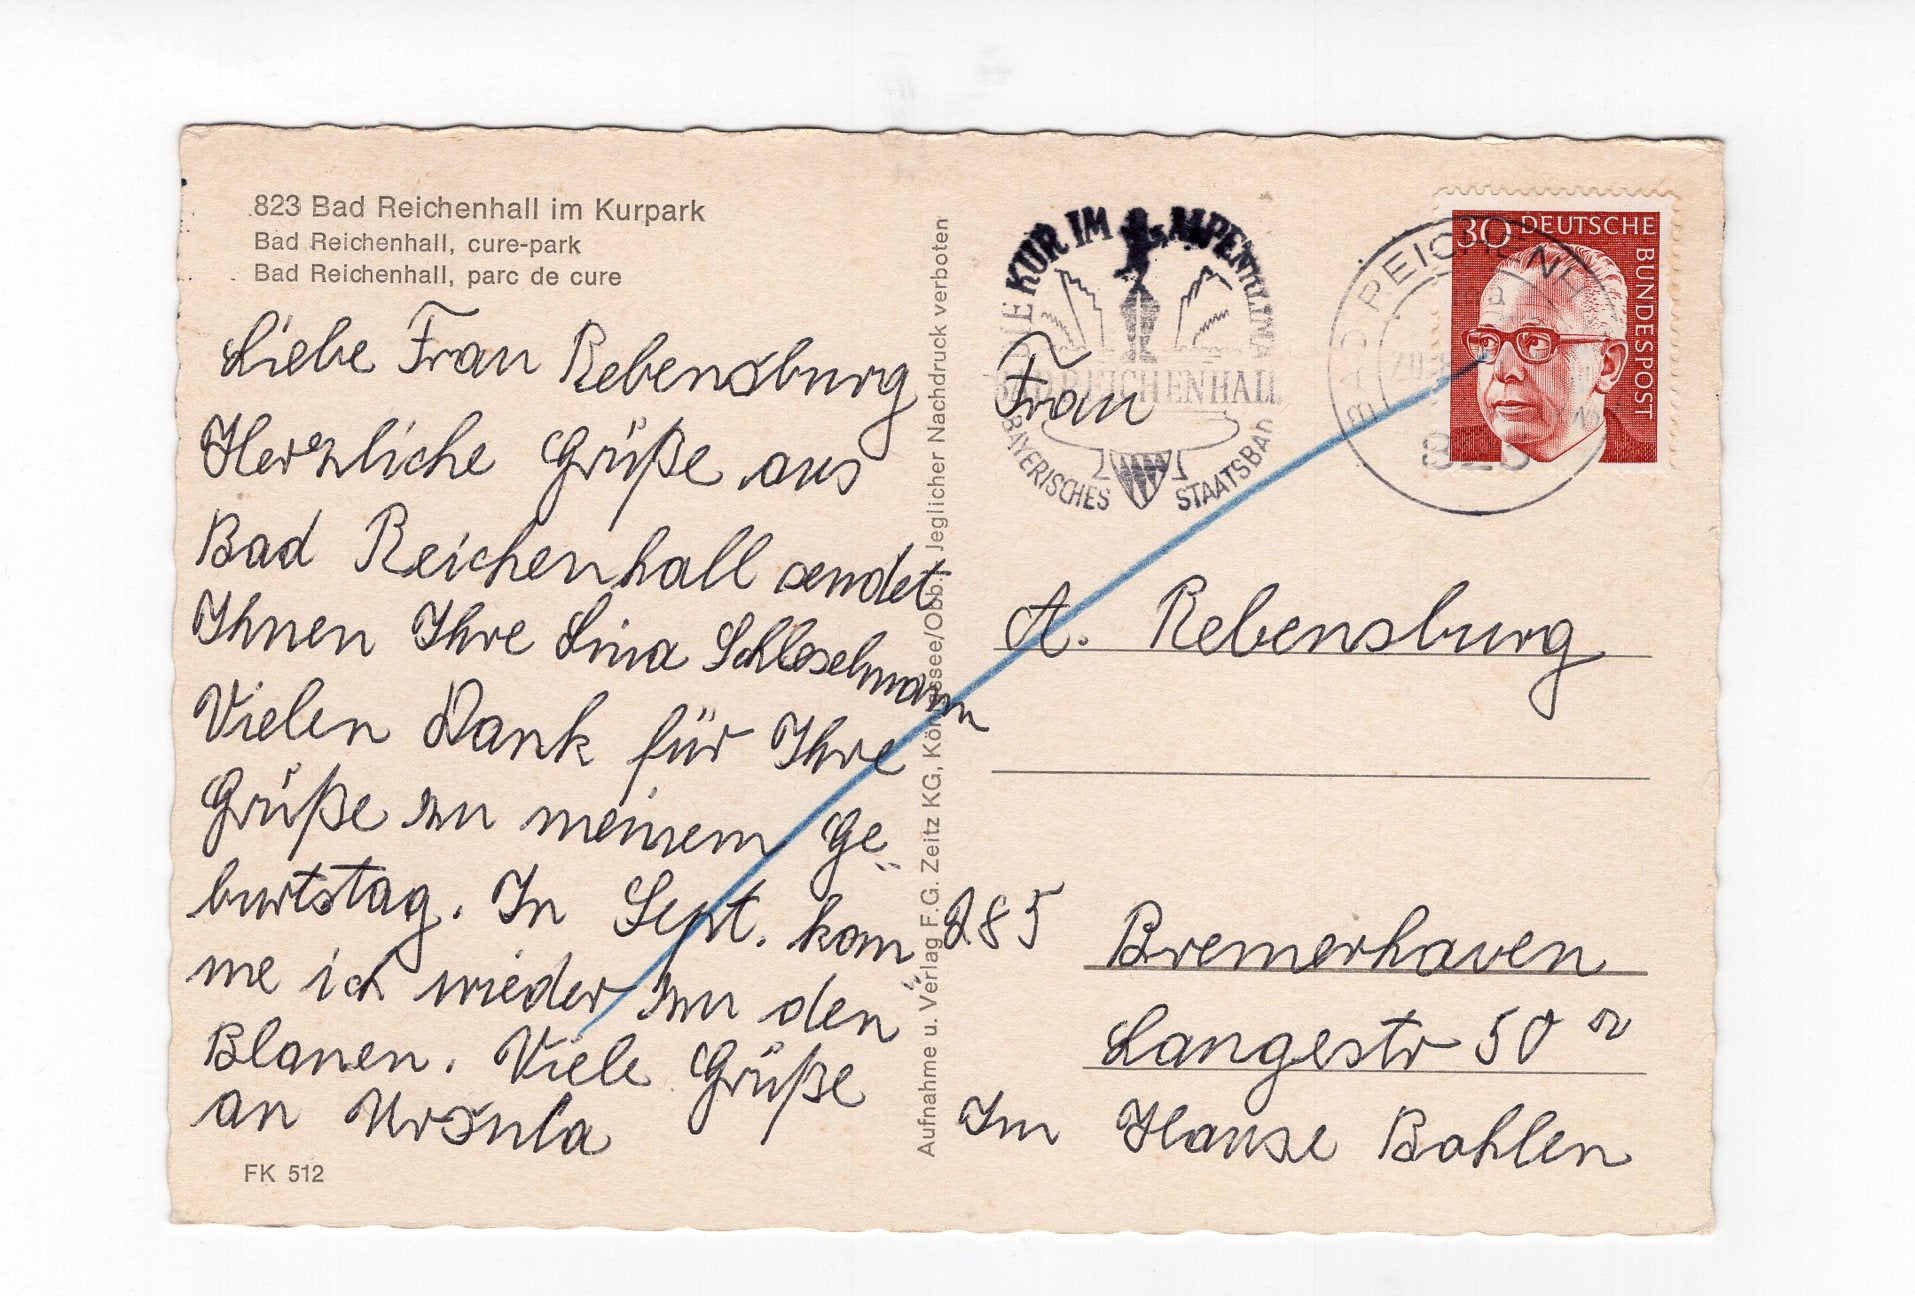 823 Bad Reichenhall im Kurpark
Bad Reichenhall, cure-park
Bad Reichenhall, parc de cure
Liebe Frau Rebensburg
Herzliche Grüße aus
Bad Reichenhall sendet
Ihnen Ihre Lina
Vielen Dank für Ihre
Grüße zu meinem Ge
burtstag. In Sept. kom
me ich wieder zu den
Blanen. Viele Grüße
an Ursula
FK 512
Aufnahme u. Verlag F.G. Zeitz KG, Königssee/Obb. Jeglicher Nachdruck verboten
KUR IM ALPENKLIMA
BAD REICHENHALL
BAYERISCHES STAATSBAD
BAD REICHENH
823
30 DEUTSCHE
BUNDESPOST
Frau
A. Rebensburg
285 Bremerhaven
Langestr 50
Im Hause Bohlen